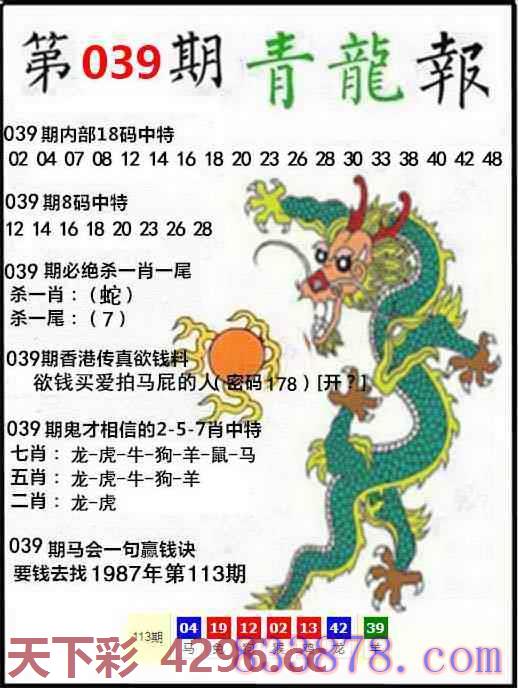 第039期 青龍報
039期内部18码中特
02 04 07 08 12 14 16 18 20 23 26 28 30 33 38 40 42 48
039期8码中特
12 14 16 18 20 23 26 28
039期必绝杀一肖一尾
杀一肖：（蛇）
杀一尾：（7）
039期香港传真欲钱料
欲钱买爱拍马屁的人(密码178)[开？]
039期鬼才相信的2-5-7肖中特
七肖：龙-虎-牛-狗-羊-鼠-马
五肖：龙-虎-牛-狗-羊
二肖：龙-虎
039期马会一句赢钱诀
要钱去找1987年第113期
113期 04 19 12 02 13 42 39
马 兔 猴 鸡 龙 羊
天下彩 4296.cc
878.com